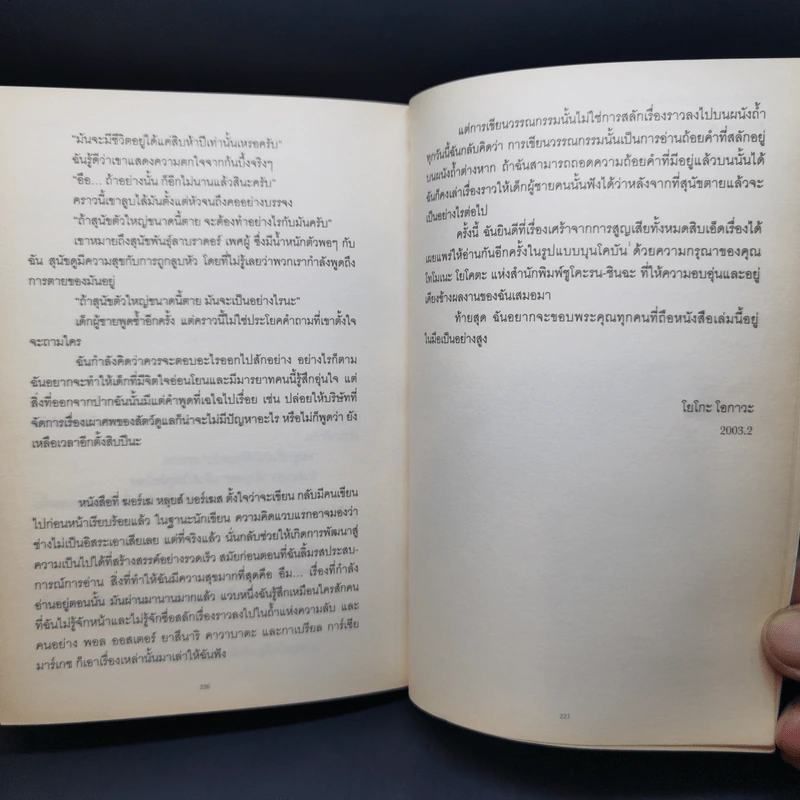 "มันจะมีชีวิตอยู่ได้แค่สิบห้าปีเท่านั้นเหรอครับ"
ฉันรู้ดีว่าเขาแสดงความตกใจจากก้นบึ้งจริงๆ
"อือ... ถ้าอย่างนั้น ก็อีกไม่นานแล้วสินะครับ"
คราวนี้เขาลูบไล้มันตั้งแต่หัวจนถึงคออย่างบรรจง
"ถ้าสุนัขตัวใหญ่ขนาดนี้ตาย จะต้องทำอย่างไรกับมันครับ"
เขาหมายถึงสุนัขพันธุ์ลาบราดอร์ เพศผู้ ซึ่งมีน้ำหนักตัวพอๆ กับ
ฉัน สุนัขดูมีความสุขกับการถูกลูบหัว โดยที่ไม่รู้เลยว่าพวกเรากำลังพูดถึง
การตายของมันอยู่
"ถ้าสุนัขตัวใหญ่ขนาดนี้ตาย มันจะเป็นอย่างไรนะ"
เด็กผู้ชายพูดซ้ำอีกครั้ง แต่คราวนี้ไม่ใช่ประโยคคำถามที่เขาตั้งใจ
จะถามใคร
ฉันกำลังคิดว่าควรจะตอบอะไรออกไปสักอย่าง อย่างไรก็ตาม
ฉันอยากจะทำให้เด็กที่มีจิตใจอ่อนโยนและมีมารยาทคนนี้รู้สึกอุ่นใจ แต่
สิ่งที่ออกจากปากฉันนั้นมีแต่คำพูดที่เฉไฉไปเรื่อย เช่น ปล่อยให้บริษัทที่
จัดการเรื่องเผาศพของสัตว์ดูแลก็น่าจะไม่มีปัญหาอะไร หรือไม่ก็พูดว่า ยัง
เหลือเวลาอีกตั้งสิบปีนะ
หนังสือที่ ฆอร์เฆ หลุยส์ บอร์เฆส ตั้งใจว่าจะเขียน กลับมีคนเขียน
ไปก่อนหน้าเรียบร้อยแล้ว ในฐานะนักเขียน ความคิดแวบแรกอาจมองว่า
ช่างไม่เป็นอิสระเอาเสียเลย แต่ที่จริงแล้ว นั่นกลับช่วยให้เกิดการพัฒนาสู่
ความเป็นไปได้ที่สร้างสรรค์อย่างรวดเร็ว สมัยก่อนตอนที่ฉันลิ้มรสประสบ-
การณ์การอ่าน สิ่งที่ทำให้ฉันมีความสุขมากที่สุดคือ อืม... เรื่องที่กำลัง
อ่านอยู่ตอนนั้น มันผ่านมานานมากแล้ว แวบหนึ่งฉันรู้สึกเหมือนใครสักคน
ที่ฉันไม่รู้จักหน้าและไม่รู้จักชื่อสลักเรื่องราวลงไปในถ้ำแห่งความลับ และ
คนอย่าง พอล ออสเตอร์ ยาสึนาริ คาวาบาตะ และกาเบรียล การ์เซีย
มาร์เกซ ก็เอาเรื่องเหล่านั้นมาเล่าให้ฉันฟัง
220
แต่การเขียนวรรณกรรมนั้นไม่ใช่การสลักเรื่องราวลงไปบนผนังถ้ำ
ทุกวันนี้ฉันกลับคิดว่า การเขียนวรรณกรรมนั้นเป็นการอ่านถ้อยคำที่สลักอยู่
บนผนังถ้ำต่างหาก ถ้าฉันสามารถถอดความถ้อยคำที่มีอยู่แล้วบนนั้นได้
ฉันก็คงเล่าเรื่องราวให้เด็กผู้ชายคนนั้นฟังได้ว่าหลังจากที่สุนัขตายแล้วจะ
เป็นอย่างไรต่อไป
ครั้งนี้ ฉันยินดีที่เรื่องเศร้าจากการสูญเสียทั้งหมดสิบเอ็ดเรื่องได้
เผยแพร่ให้อ่านกันอีกครั้งในรูปแบบบุนโคบัน ด้วยความกรุณาของคุณ
โทโมเนะ โยโคตะ แห่งสำนักพิมพ์ชูโคะรน-ชินฉะ ที่ให้ความอบอุ่นและอยู่
เคียงข้างผลงานของฉันเสมอมา
ท้ายสุด ฉันอยากจะขอบพระคุณทุกคนที่ถือหนังสือเล่มนี้อยู่
ในมือเป็นอย่างสูง
โยโกะ โอกาวะ
2003.2
221